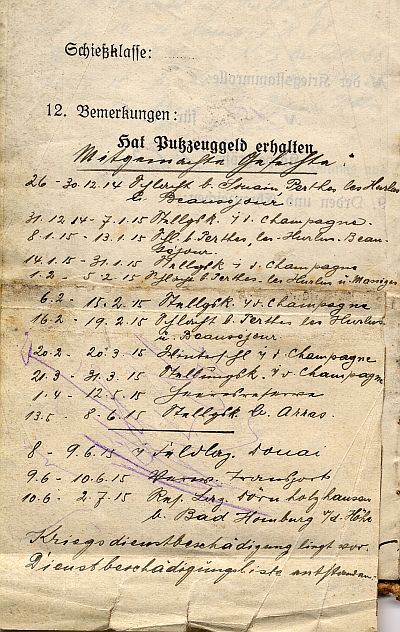 Schießklasse:
12. Bemerkungen:
Hat Putzzeuggeld erhalten
Mitgemachte Gefechte:
26 - 30.12.14 Schlacht b. Souain, Perthes les Hurlus
b. Beausejour
31.12.14 - 7.1.15 Stellgsk. i. d. Champagne.
8.1.15 - 13.1.15 Schl. b. Perthes, les-Hurlus-Beau-
séjour.
14.1.15 - 31.1.15 Stellgk. i. d. Champagne
1.2 - 5.2.15 Schlacht b. Perthes-les Hurlus u Massiges
6.2 - 15.2.15 Stellgsk. i. d. Champagne.
16.2 - 19.2.15 Schlacht b. Perthes les Hurlus
u. Beausejour.
20.2 - 20.3.15 Winterschl i d. Champagne
21.3 - 31.3.15 Stellungsk. i. d. Champagne
1.4 - 12.5.15 Heeresreserve
13.5 - 8.6.15 Stellgsk b. Arras.
8 - 9.6.15 i Feldlaz. Douai
9.6 - 10.6.15 Transport
10.6 - 2.7.15 Res. Laz. Dörnholzhausen
b. Bad Homburg v/d. Höhe
Kriegsdienstbeschädigung liegt vor.
Dienstbeschädigungsliste